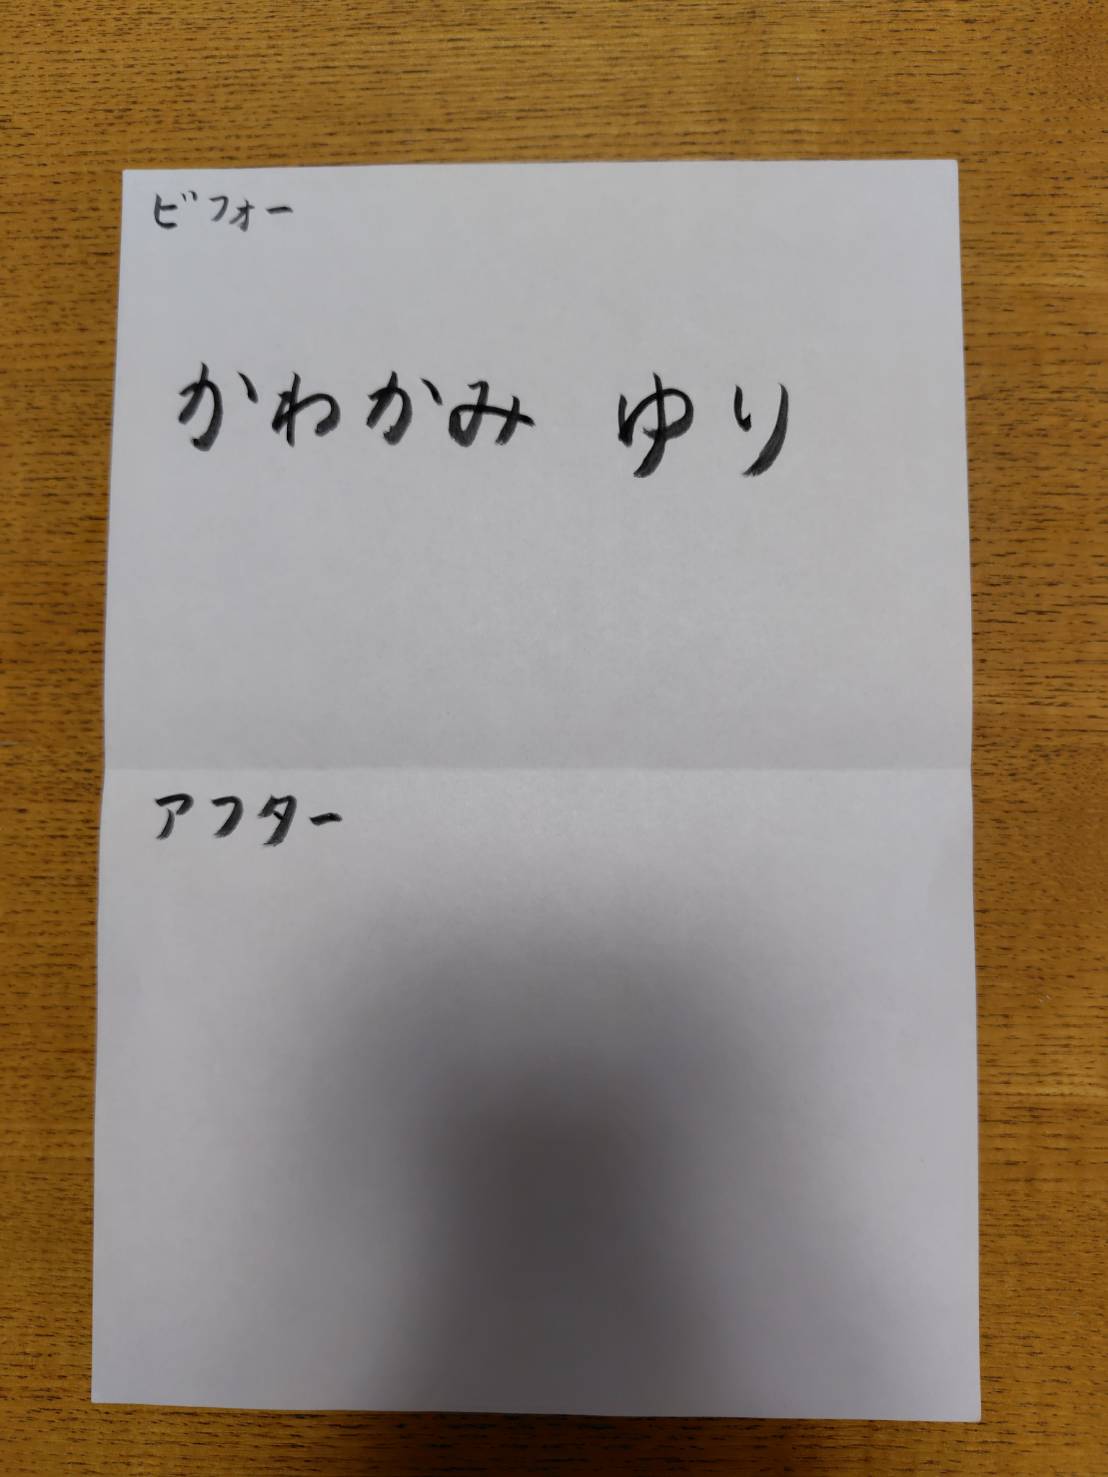 ビフォー
かわかみ ゆり
アフター